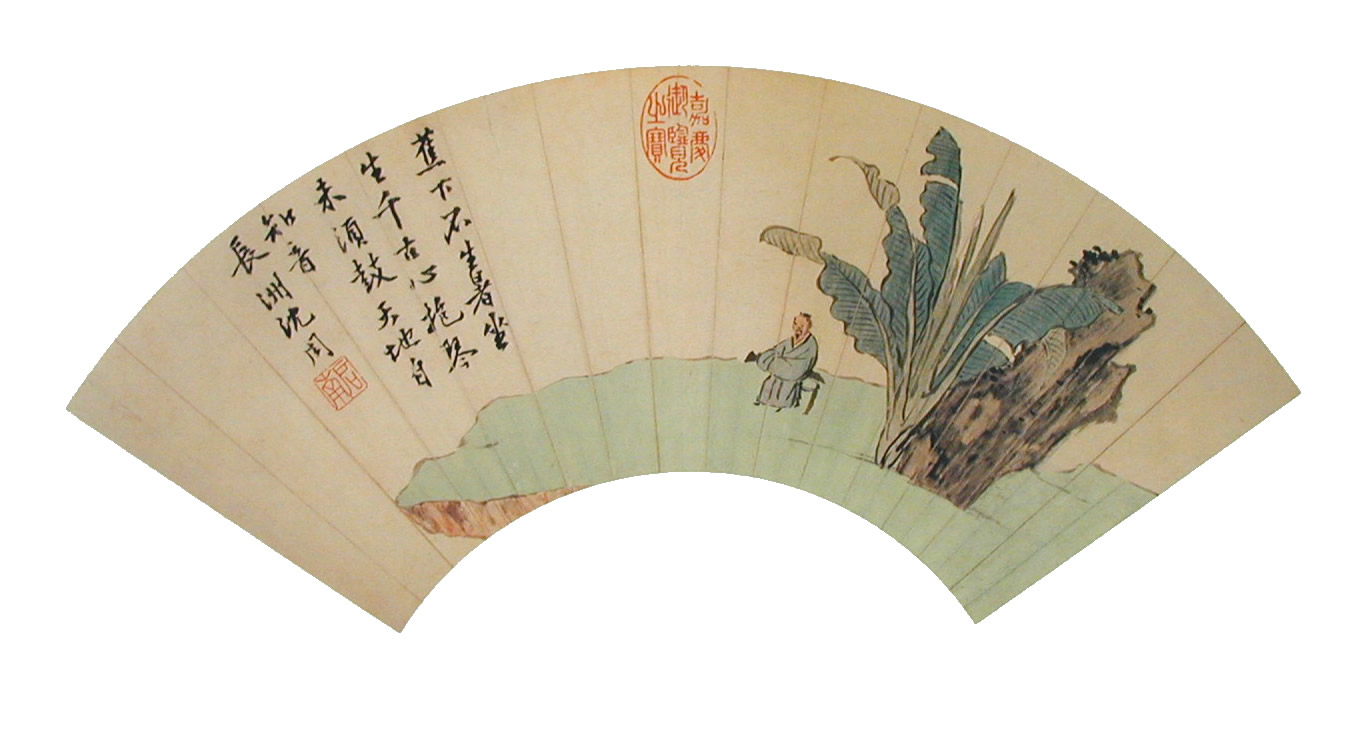 嘉慶
御覽
之寶
蕉下不生暑坐
生千古心抱琴
未須鼓天地自
知音
長洲沈周
启南